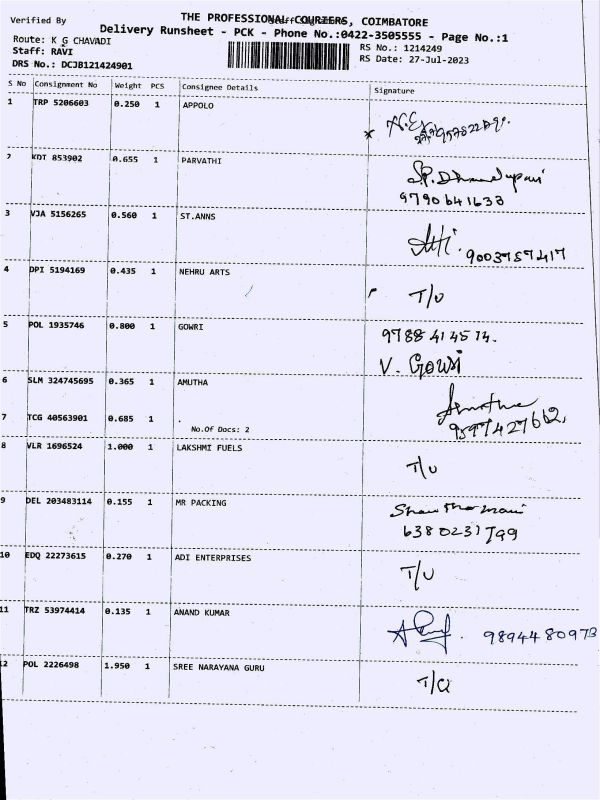 Verified By
THE PROFESSIONAL COURIERS, COIMBATORE
Delivery Runsheet - PCK - Phone No.:0422-3505555 - Page No.:1
Route: K G CHAVADI
RS No.: 1214249
Staff: RAVI
RS Date: 27-Jul-2023
DRS No.: DCJB121424901
S No Consignment No Weight PCS Consignee Details Signature
1 TRP 5206603 0.250 1 APPOLO
2 KDT 853902 0.655 1 PARVATHI
9790641633
3 VJA 5156265 0.560 1 ST.ANNS
9003757417
4 DPI 5194169 0.435 1 NEHRU ARTS
T/U
5 POL 1935746 0.800 1 GOWRI 9788414514.
V. Gowri
6 SLM 324745695 0.365 1 AMUTHA
Amutha
7 TCG 40563901 0.685 1 .
No.Of Docs: 2
8 VLR 1696524 1.000 1 LAKSHMI FUELS
T/U
9 DEL 203483114 0.155 1 MR PACKING
6380231799
10 EDQ 22273615 0.270 1 ADI ENTERPRISES
T/U
11 TRZ 53974414 0.135 1 ANAND KUMAR
9894480973
12 POL 2226498 1.950 1 SREE NARAYANA GURU